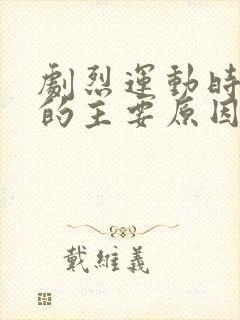 劇烈運動時
的主要原因
戴維義